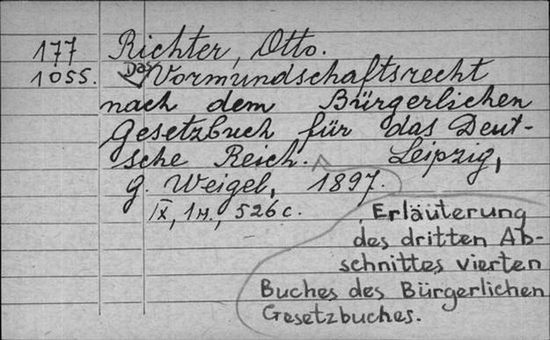 177 Richter, Otto.
1055. Das Vormundschaftsrecht
nach dem Bürgerlichen
Gesetzbuch für das Deut-
sche Reich. Leipzig,
G. Weigel, 1897.
IX, 1н., 526 с.
Erläuterung
des dritten Ab-
schnittes vierten
Buches des Bürgerlichen
Gesetzbuches.